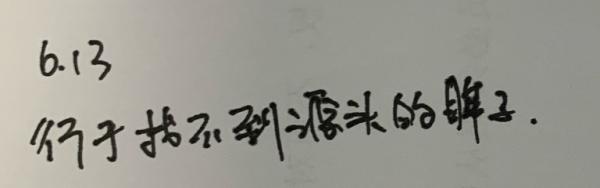 6.13
行于找不到源头的眸子.